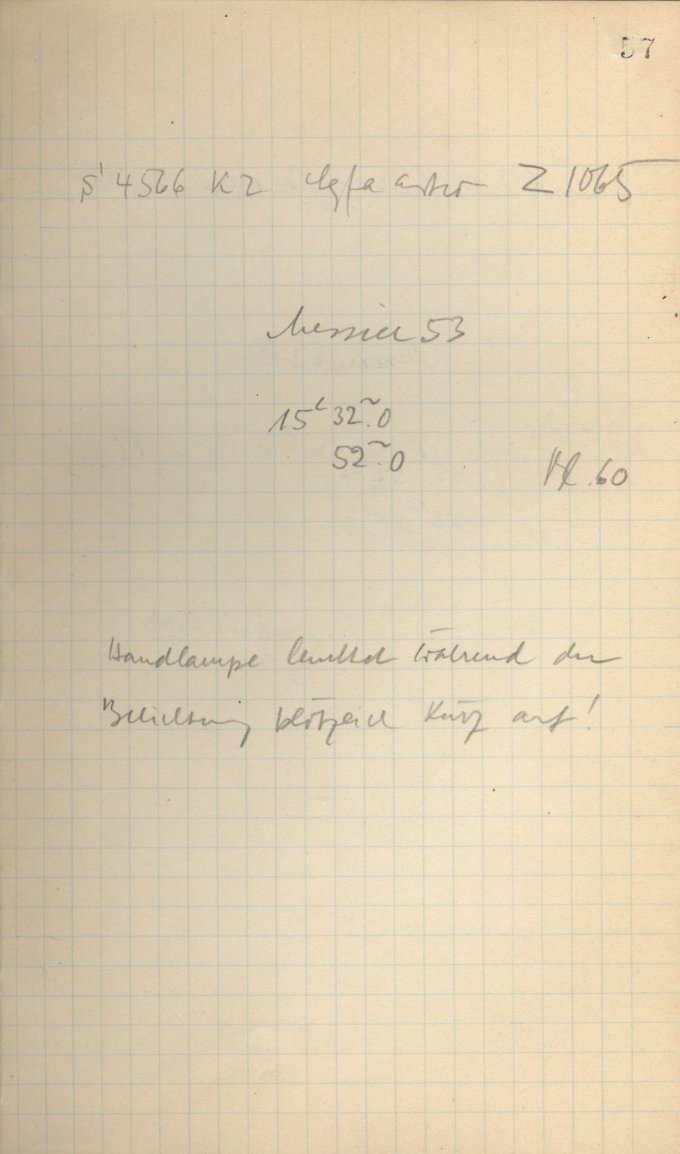 57
S 4566 K2 Agfa astro Z 1065
Messier 53
15ʰ 32ᵐ.0
52ᵐ.0
Bl. 60
Handlampe leuchtet während der
Belichtung plötzlich kurz auf!